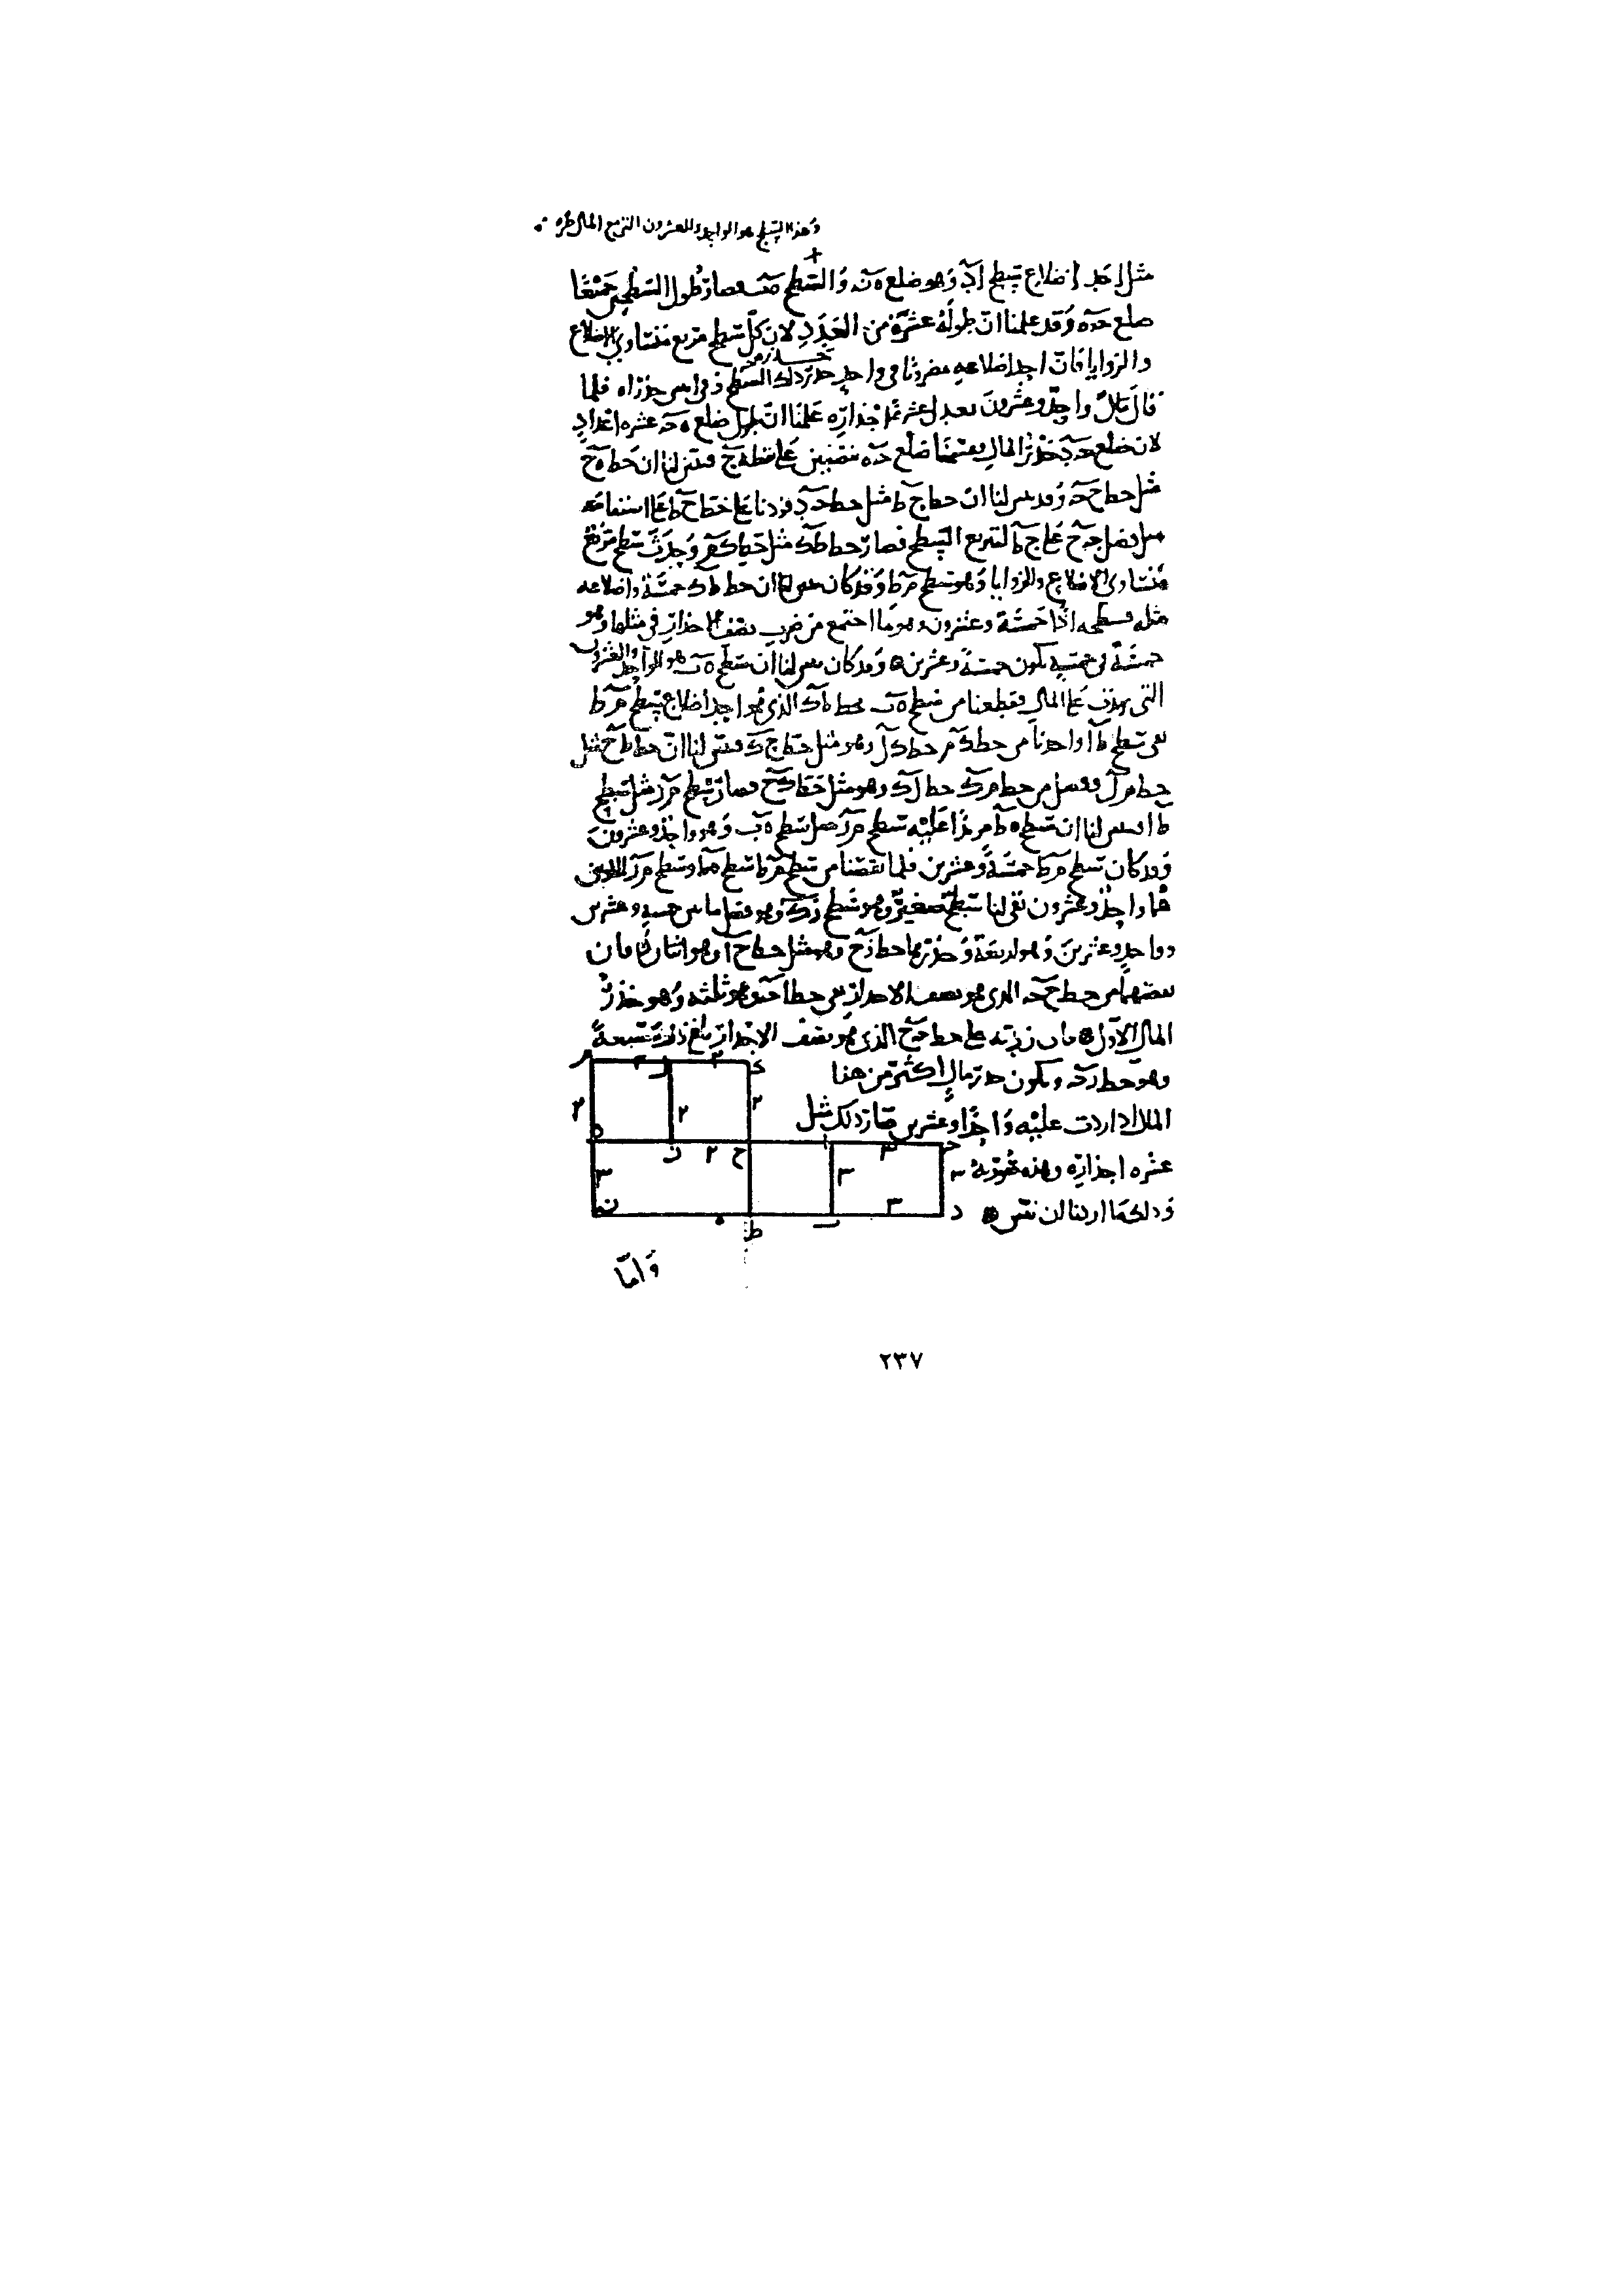 وهذا السطح هو الواحد والعشرون التي مع المال
مثل احد اضلاع سطح اد وهو ضلع ه ن والسطح ه ب فصار طول السطحين جميعا
ضلع حه وقد علمنا ان طوله عشرة من العدد لان كل سطح مربع متساوى الاضلاع
والزوايا فان احد اضلاعه مضروبا في واحد جذر ذلك السطح وفي اثنين جذراه فلما
قال مال وواحد وعشرون يعدل عشرة اجذاره علمنا ان طول ضلع ه ح عشرة اعداد
لان ضلع حد جذر المال فقسمنا ضلع حه نصفين على نقطة ح فتبين لنا ان خط ه ح
مثل خط ح ح وقد تبين لنا ان خط ح ط مثل خط حد فزدنا على خط ح ط على استقامته
مثل فضل ح ح على ح ط لتربع السطح فصار خط ط ك مثل خط ك م وحدث سطح مربع
متساوى الاضلاع والزوايا وهو سطح م ط وقد كان تبين لنا ان خط ط ك خمسة واضلاعه
مثله فسطحه اذا خمسة وعشرون وهو ما اجتمع من ضرب نصف الاجذار في مثلها وهو
خمسة في خمسة يكون خمسة وعشرين وقد كان تبين لنا ان سطح ه ب هو الواحد والعشرون
التي زيدت على المال فقطعنا من سطح ه ب بخط ط ك الذى هو احد اضلاع سطح م ط
بقى سطح ط ا واخذنا من خط ك م خط ك ل وهو مثل خط ح ك فتبين لنا ان خط ط ح مثل
خط م ل وفضل من خط م ك خط ل ك وهو مثل خط ك ح فصار سطح م ر مثل سطح
ط ا فتبين لنا ان سطح ه ط مزيدا عليه سطح م ر مثل سطح ه ب وهو واحد وعشرون
وقد كان سطح م ط خمسة وعشرين فلما نقصنا من سطح م ط سطح ه ط وسطح م ر اللذين
هما واحد وعشرون بقى لنا سطح صغير وهو سطح ر ك وهو فضل ما بين خمسة وعشرين
وواحد وعشرين وهو اربعة وجذرها خط ر ح وهو مثل خط ح ا وهو اثنان فان
نقصتهما من خط ح ح الذى هو نصف الاجذار بقى خط ا ح وهو ثلثة وهو جذر
المال الاول فان زدته على خط ح ح الذى هو نصف الاجذار بلغ ذلك سبعة
وهو خط ر ح ويكون جذر مال اكثر من هذا
المال اذا زدت عليه واحدا وعشرين صار ذلك مثل
عشرة اجذاره وهذه صورته
وذلك ما اردنا ان نبين
م
ل
٢
ك
٢
٢
٢
ه
ر
٢
ح
ا
ح
٣
٣
٣
٣
ن
ط
ب
د
واما
٢٣٧